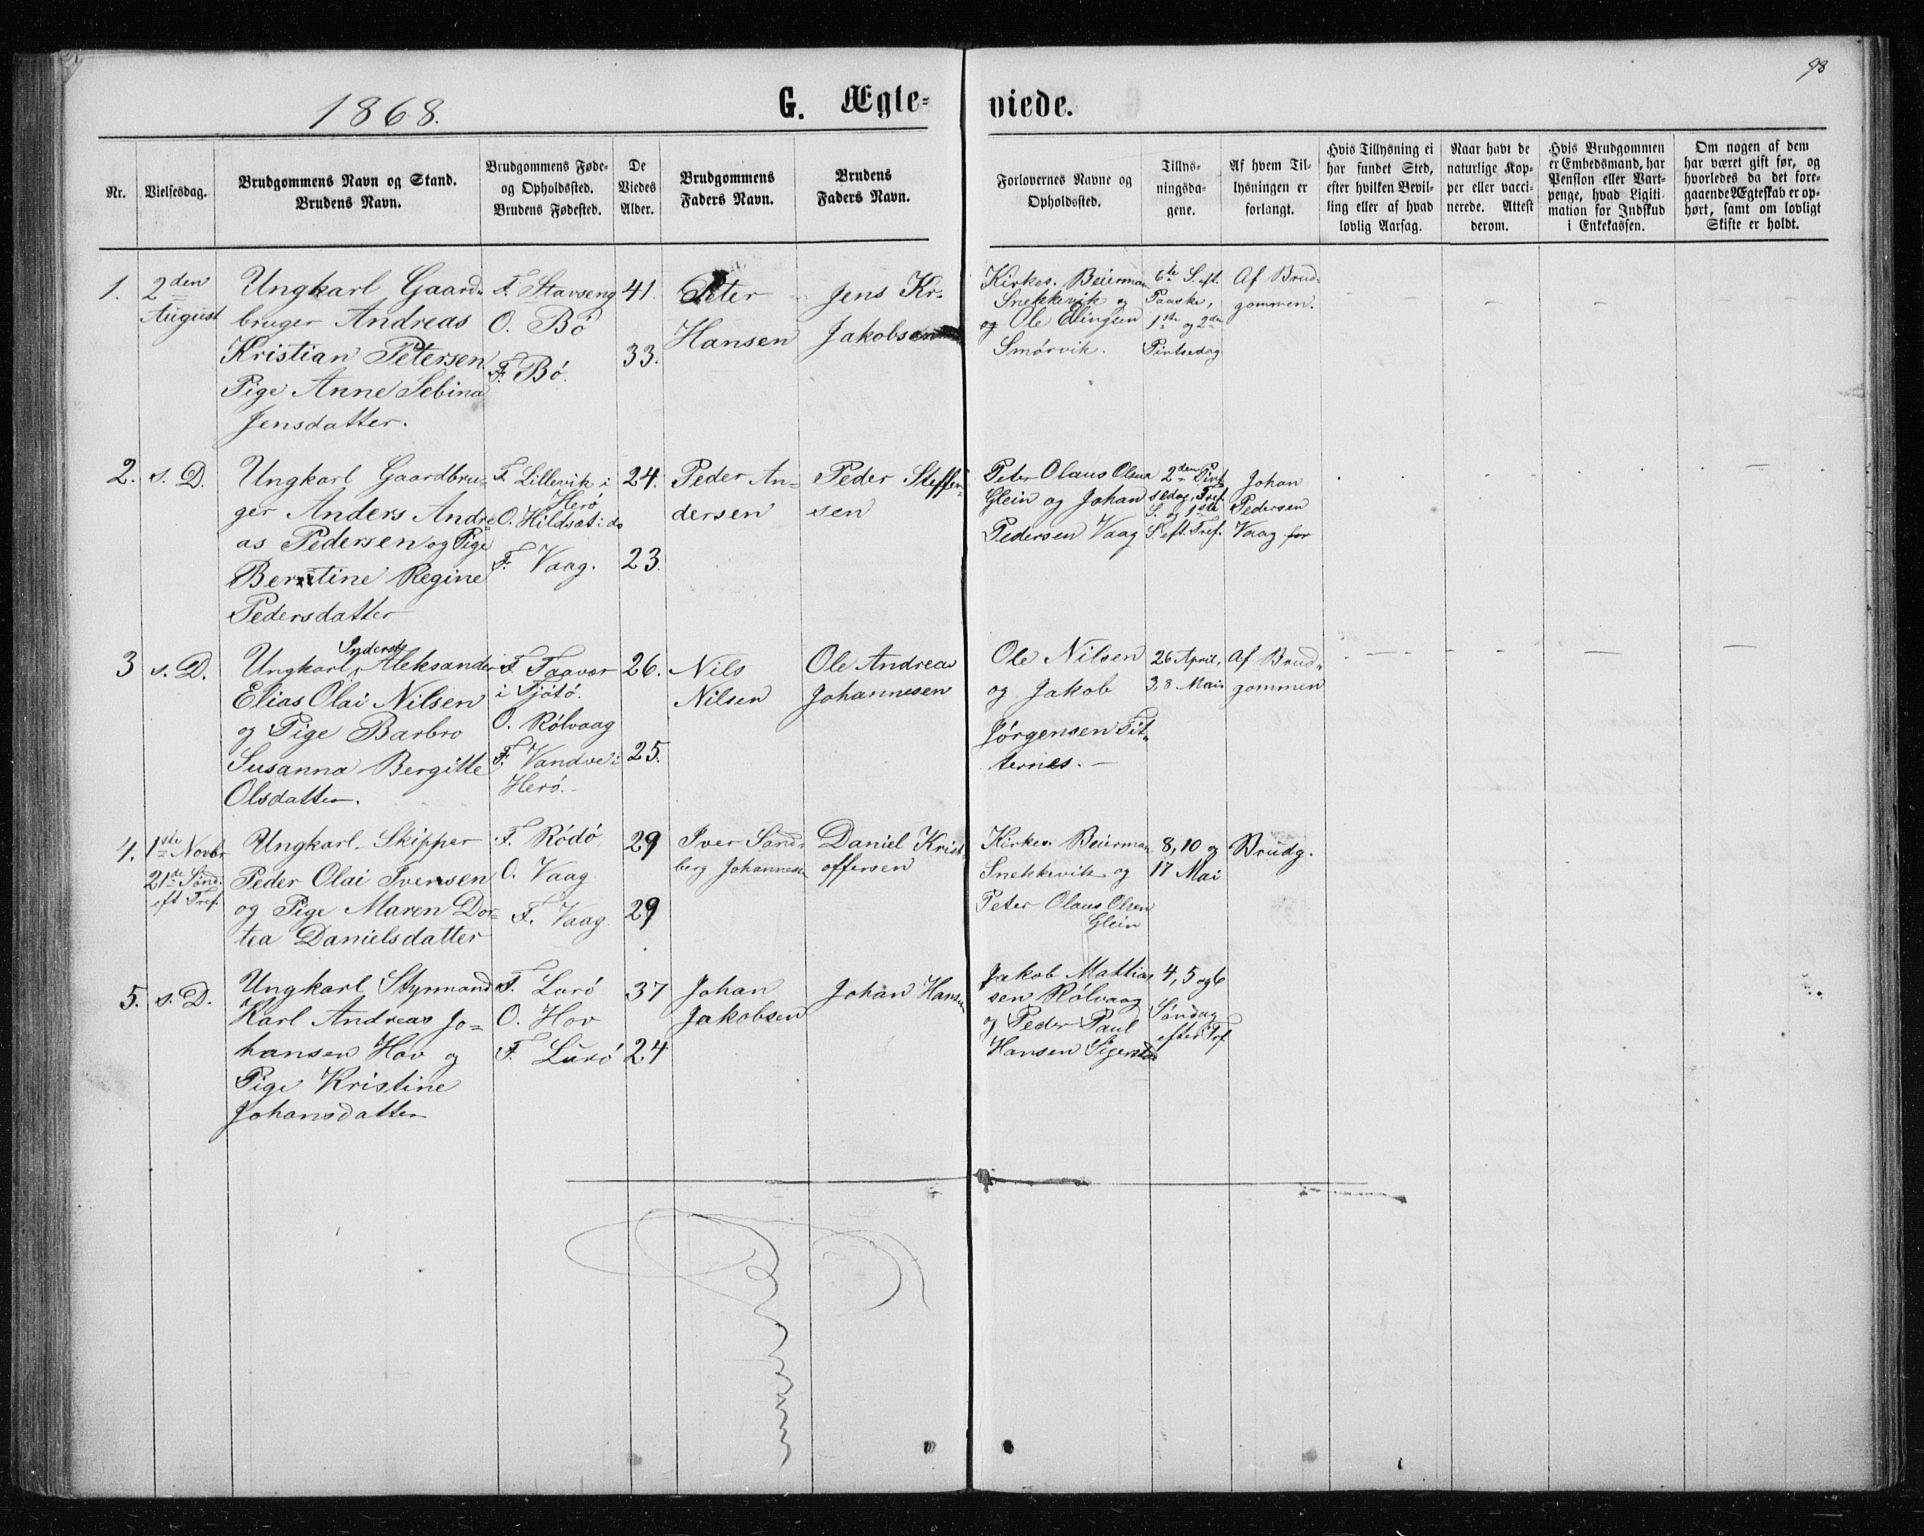 1868.
G. Ægte-
viede.
98
Nr.
Vielsesdag.
Brudgommens Navn og Stand.
Brudens Navn.
Brudgommens Føde-
og Opholdssted.
Brudens Fødested.
De
Viedes
Alder.
Brudgommens
Faders Navn.
Brudens
Faders Navn.
Forlovernes Navne og
Opholdssted.
Tillys-
ningsda-
gene.
Af hvem Til-
lysningen er
forlangt.
Hvis Tillysning ei
har fundet Sted,
efter hvilken Bevil-
ling eller af hvad
lovlig Aarsag.
Naar havt de
naturlige Kop-
per eller vacci-
nerede. Attest
derom.
Hvis Brudgommen
er Embedsmand, har
Pension eller Vart-
penge, hvad Ligiti-
mation for Indskud
i Enkekassen.
Om nogen af dem
har været gift før, og
hvorledes da det fore-
gaaende Ægteskab er op-
hørt, samt om lovligt
Skifte er holdt.
1.
2den
August
Ungkarl Gaard-
bruger Andreas
Kristian Petersen
Pige Anne Sebina
Jensdatter.
F. Stavseng
O. Bö
F. Bö.
41.
33.
Peter
Hansen
Jens Kr.
Jakobsen
Kirkes. Beierman
Snekkevik og
og Ole Elingsen
Smörvik.
6te S. eft.
Paaske,
1ste og 2den
Pintsedag
Af Brud-
gommen.
2.
s. D.
Ungkarl Gaardbru-
ger Anders Andre-
as Pedersen og Pige
Berntine Regine
Pedersdatter
F. Lillevik i
Herö
O. Hildsæt i do
F. Vaag.
24.
23.
Peder An-
dersen
Peder Steffen-
sen
Peter Olaus Olsen
Glein og Johan
Pedersen Vaag
2den Pint-
sedag, Tref.
S. og 1ste
S. eft. Tref.
Johan
Pedersen
Vaag for
3
s. D.
Inderst
Ungkarl, Aleksander
Elias Olai Nilsen
og Pige Barbro
Susanna Bergitte
Olsdatter.
F. Faavær
i Tjötö.
O. Rölvaag
F. Vandve i
Herö.
26.
25.
Nils
Nilsen
Ole Andreas
Johannesen
Ole Nilsen
og Jakob
Jörgensen Tit-
ternes.
26 April,
3, 8 Mai
Af Brud-
gommen
4.
1ste Novbr
21de Sönd.
eft Tref.
Ungkarl Skipper
Peder Olai Iversen
og Pige Maren Dor-
tea Danielsdatter
F. Rödö
O. Vaag
F. Vaag
29
29
Iver Sand-
berg Johannesen
Daniel Krist-
offersen
Kirkes. Beierman
Snekkevik og
Peter Olaus Olsen
Glein
8, 10 og
17 Mai
Brudg.
5.
s. D.
Ungkarl Styrmand
Karl Andreas Jo-
hansen Hov og
Pige Kristine
Johansdatter
F. Lurö
O. Hov
F. Lurö
37
24
Johan
Jakobsen
Johan Hansen
Jakob Mattias
sen Rölvaag
og Peder Paul
Hansen
4, 5 og 6
Söndag
efter Trf